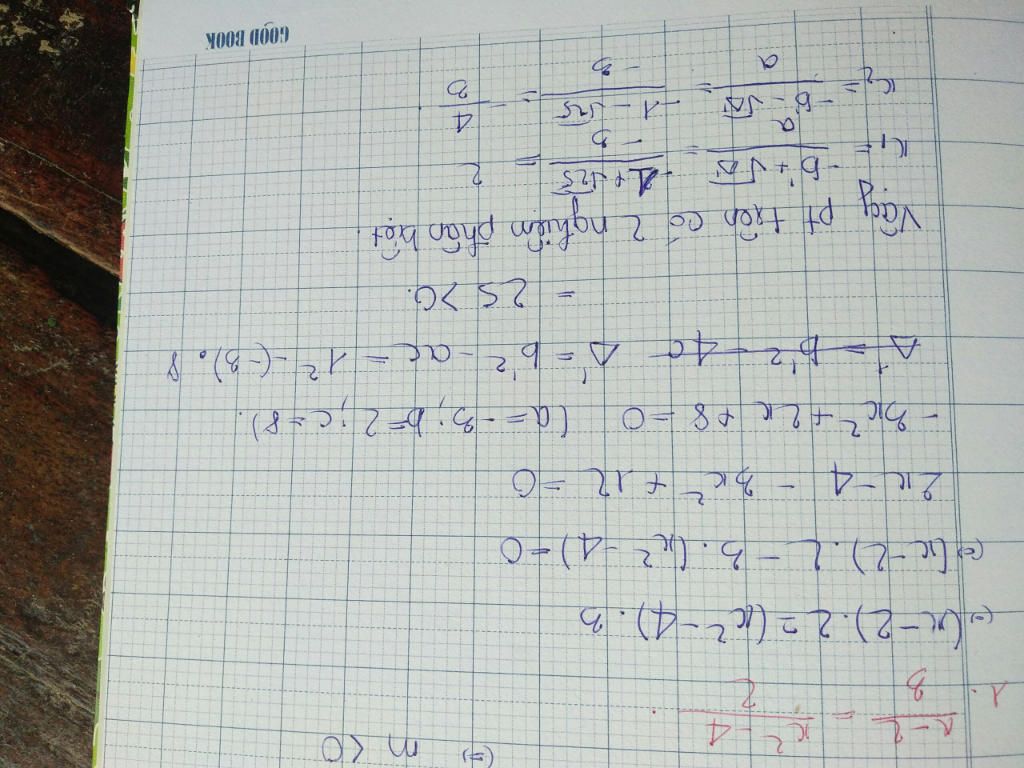 (=) m < 0
1. x-2/3 = x²-4/2.
(=) (x-2).2 = (x²-4).3
(=) (x-2).2 - 3.(x²-4) = 0
2x-4 - 3x² + 12 = 0
-3x² + 2x + 8 = 0 (a = -3; b = 2; c = 8).
Δ' = b'² - 4c Δ' = b'² - ac = 1² - (-3).8
= 25 > 0.
Vậy pt trên có 2 nghiệm phân biệt.
x₁ = -b' + √Δ'/a = -1 + √25/-3 = 2
x₂ = -b' - √Δ'/a = -1 - √25/-3 = -4/3.
GOOD BOOK